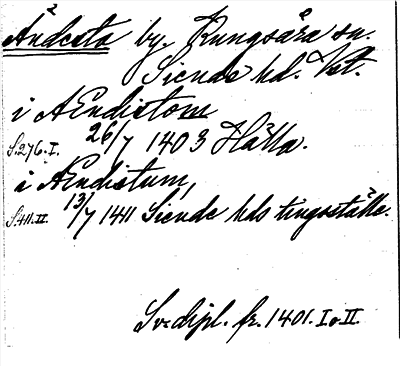 Åndesta by. Kungsåra sn.
Siende hd. Vst.
i Ændistom
S.276.I. 26/7 1403 Hälla.
i Ændistum,
S.411.II. 13/7 1411 Siende hds tingsställe.
Sv. dipl. fr. 1401. I o II.